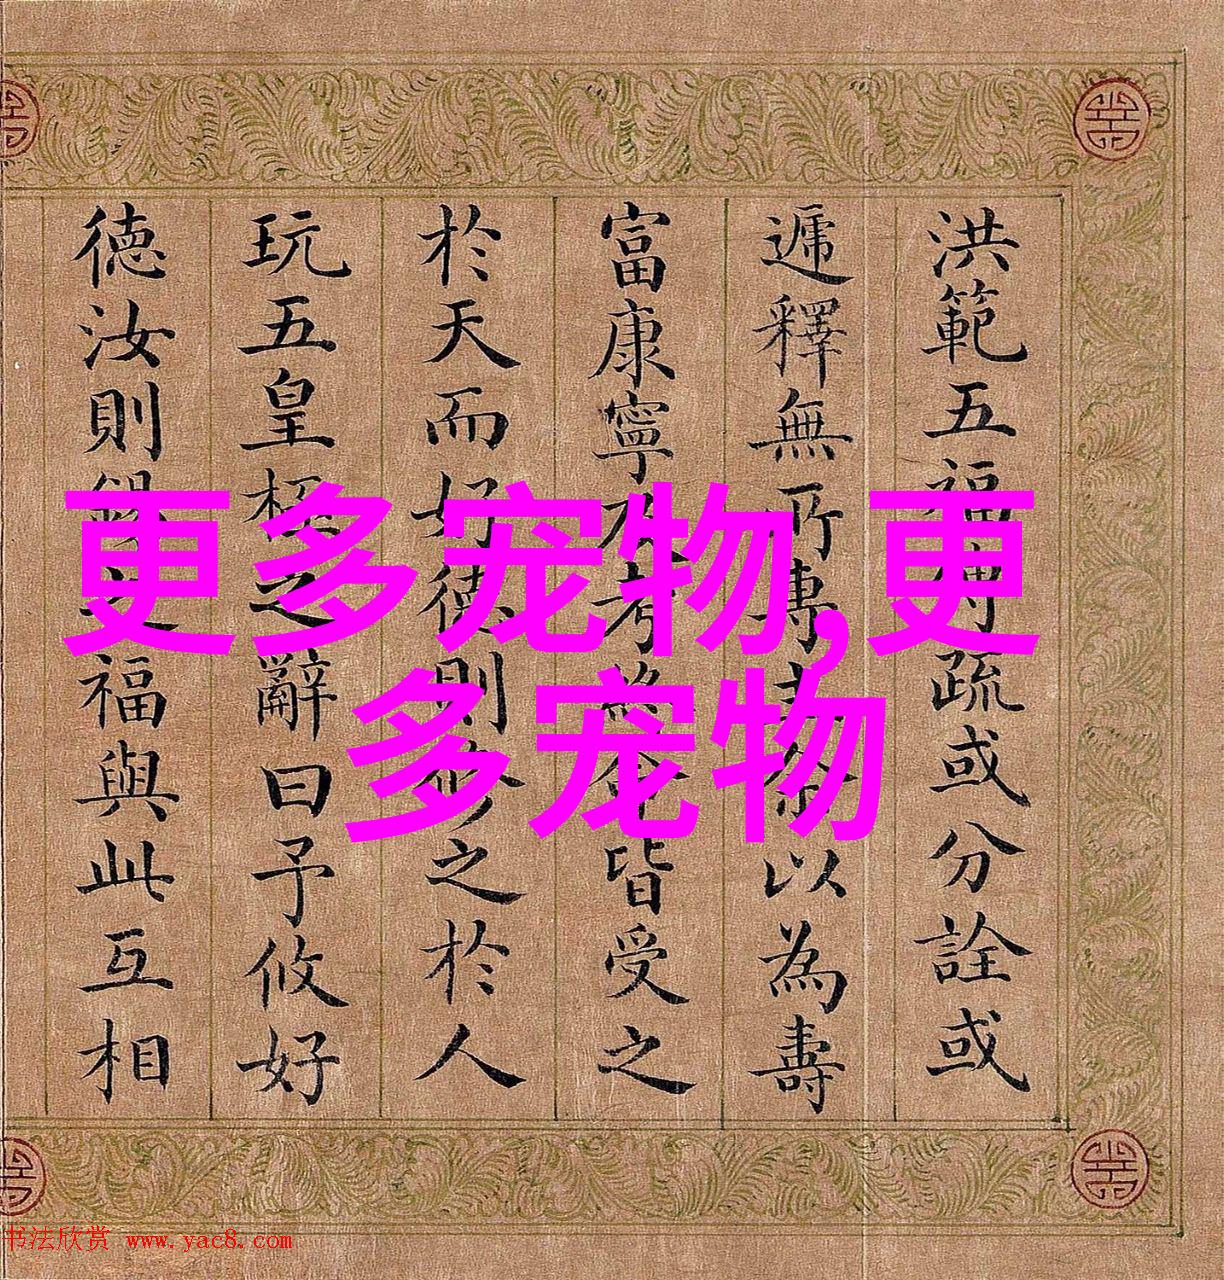 洪範五福疏或分詮或
遞釋無所專以為壽
富康寧考皆受之
於天而好德則修之於人
玩五皇極之辭曰予攸好
德汝則錫之福與此互相
更多宠物,更
多宠物
书法欣赏 www.yac8.com